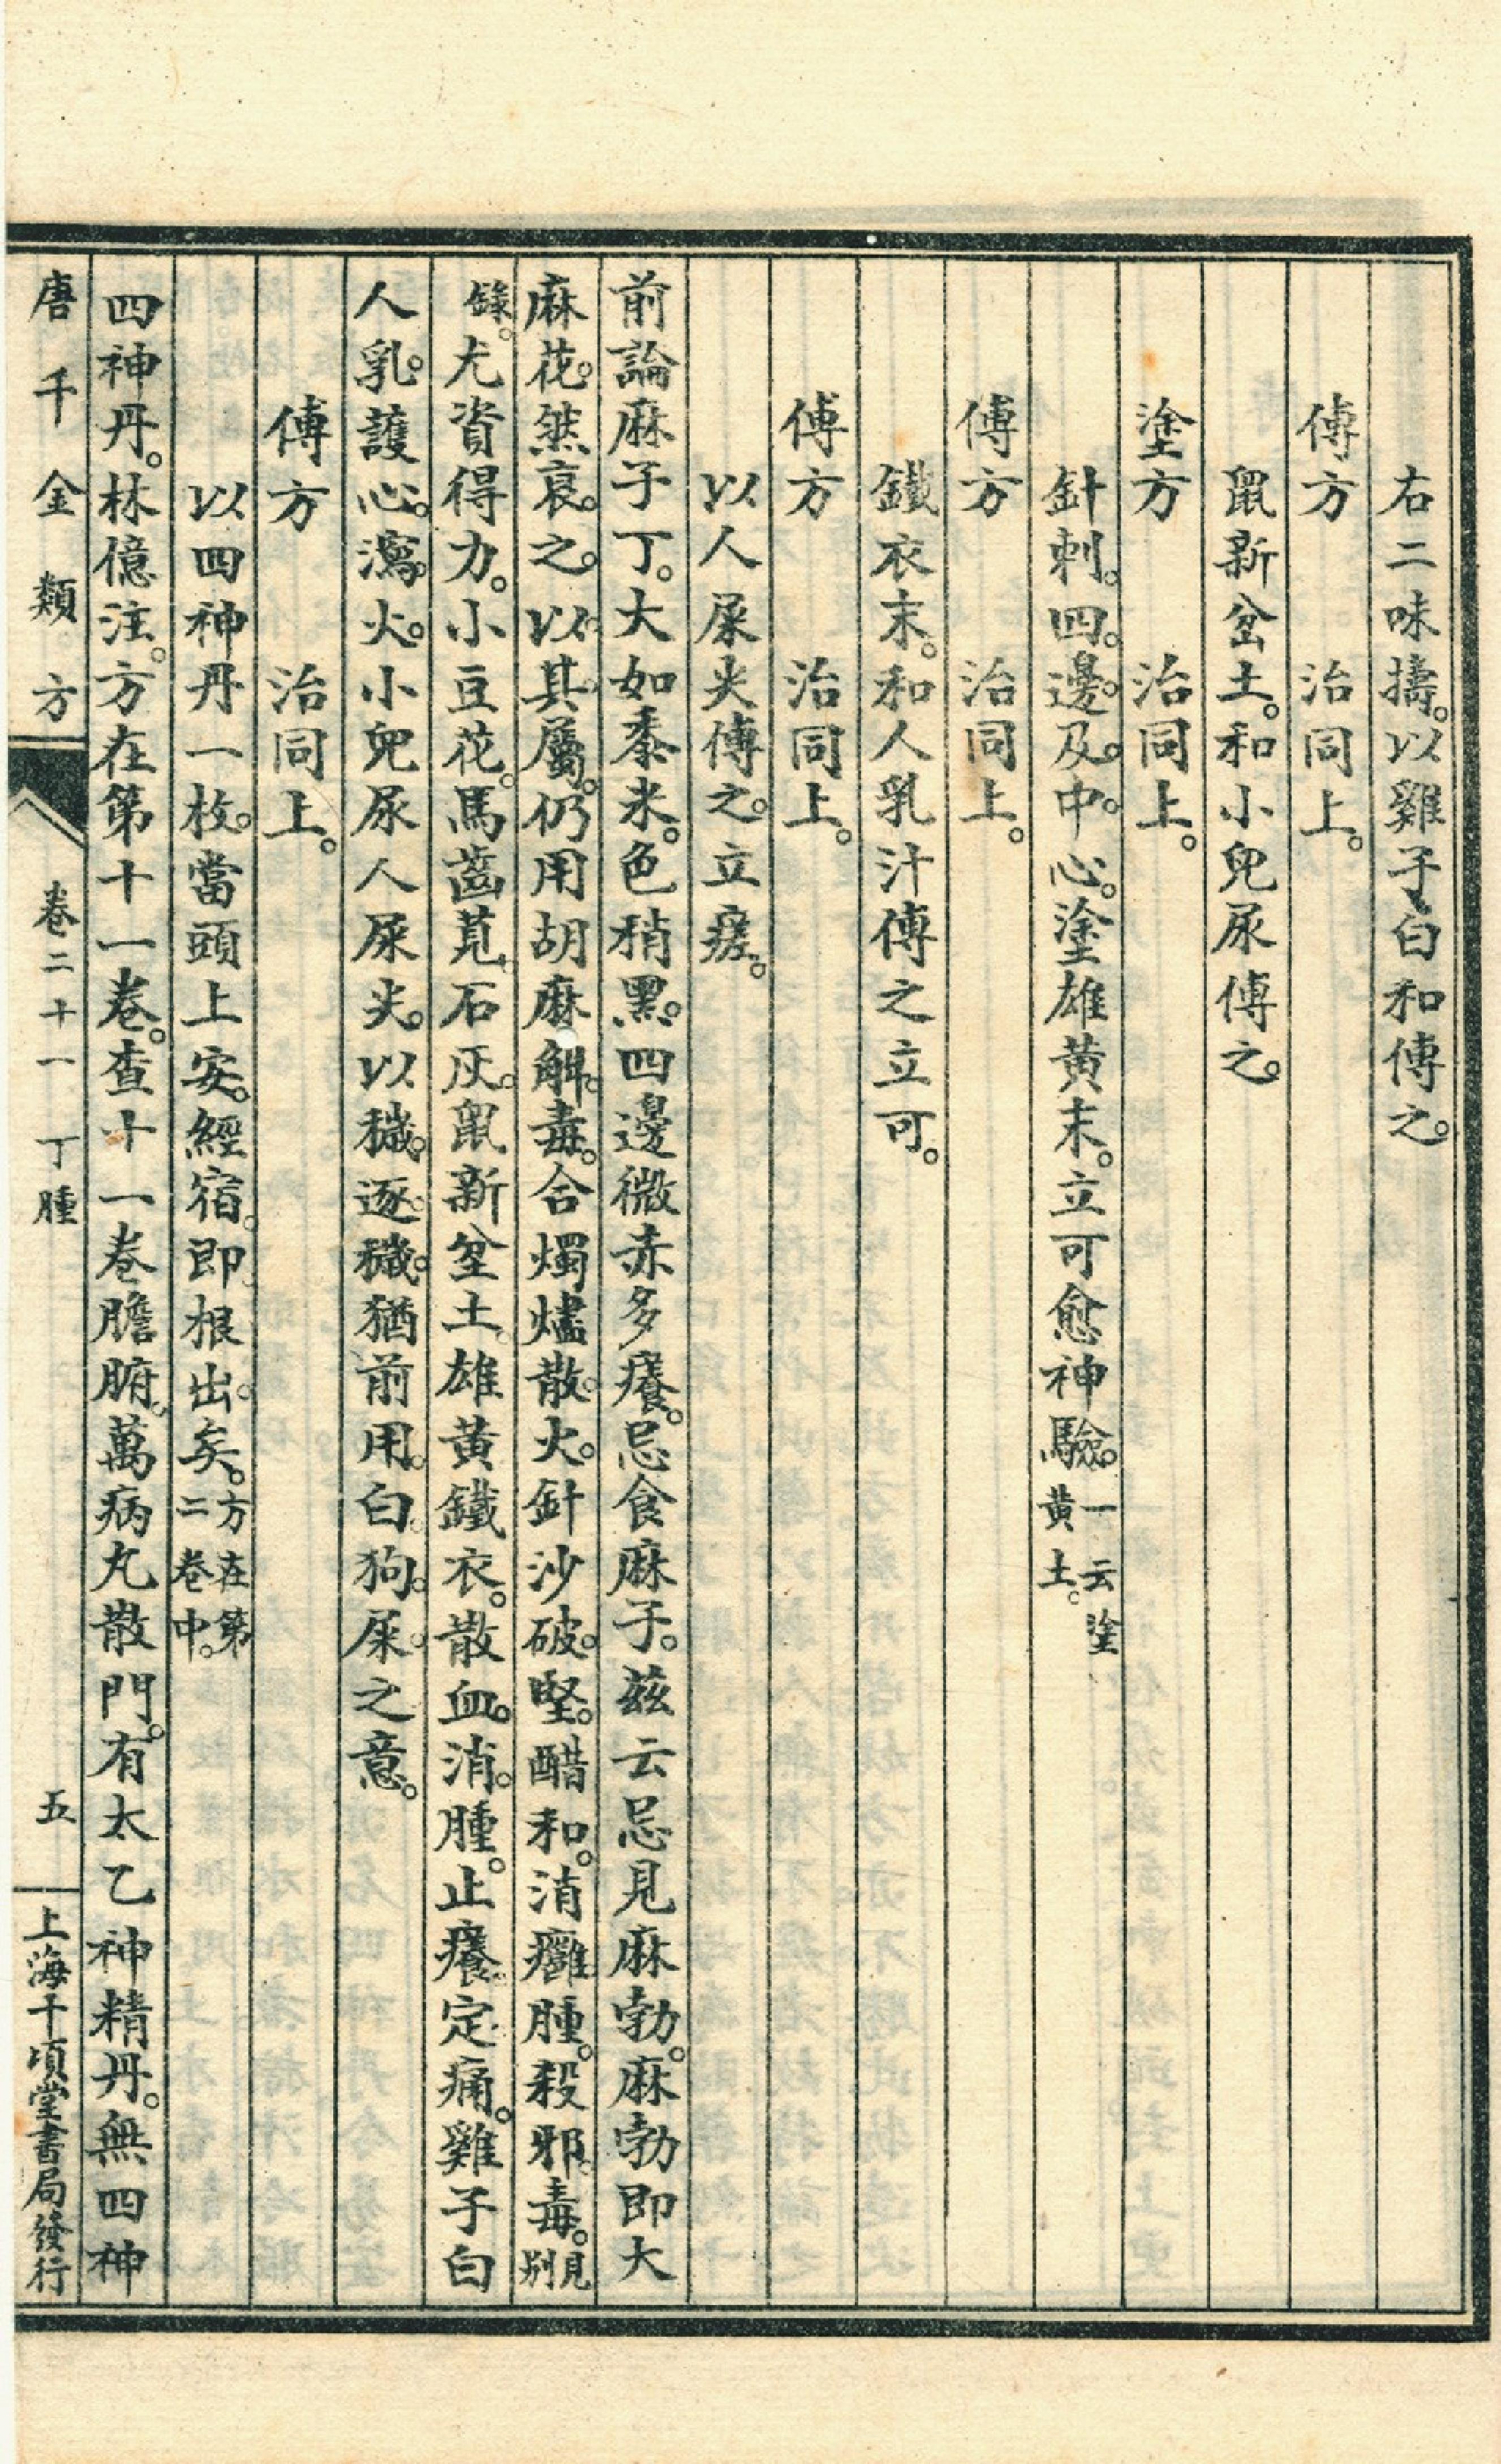 右二味擣。以雞子白和傅之。
傅方　治同上。
鼠新坌土。和小兒尿傅之。
塗方　治同上。
針刺。四。邊。及。中。心。塗雄黃末。立可愈神驗。一云塗黃土。
傅方　治同上。
鐵衣末。和人乳汁傅之立可。
傅方　治同上。
以人屎尖傅之。立瘥。
前論麻子丁。大如黍米。色稍黑。四邊微赤多癢。忌食麻子。茲云忌見麻勃。麻勃即大
麻花。然裛。之。以。其。屬。仍用胡麻解。毒。合燭燼散。火。針沙破。堅。醋和。消癰腫。殺邪。毒。見別
錄。尤資得力。小豆花。馬齒莧。石灰。鼠新坌土。雄黃鐵衣。散血。消。腫。止癢。定痛。雞子白
人乳。護心。瀉。火。小兒尿人屎尖。以穢。逐。穢。猶前用。白。狗。屎。之意。
傅方　治同上。
以四神丹一枚。當頭上安。經宿。即根出。矣。方在第二卷中。
四神丹。林億注。方在第十一卷。查十一卷膽腑。萬病丸散門。有太乙神精丹。無四神
唐千金類方　卷二十一　丁腫　五　上海千頃堂書局發行